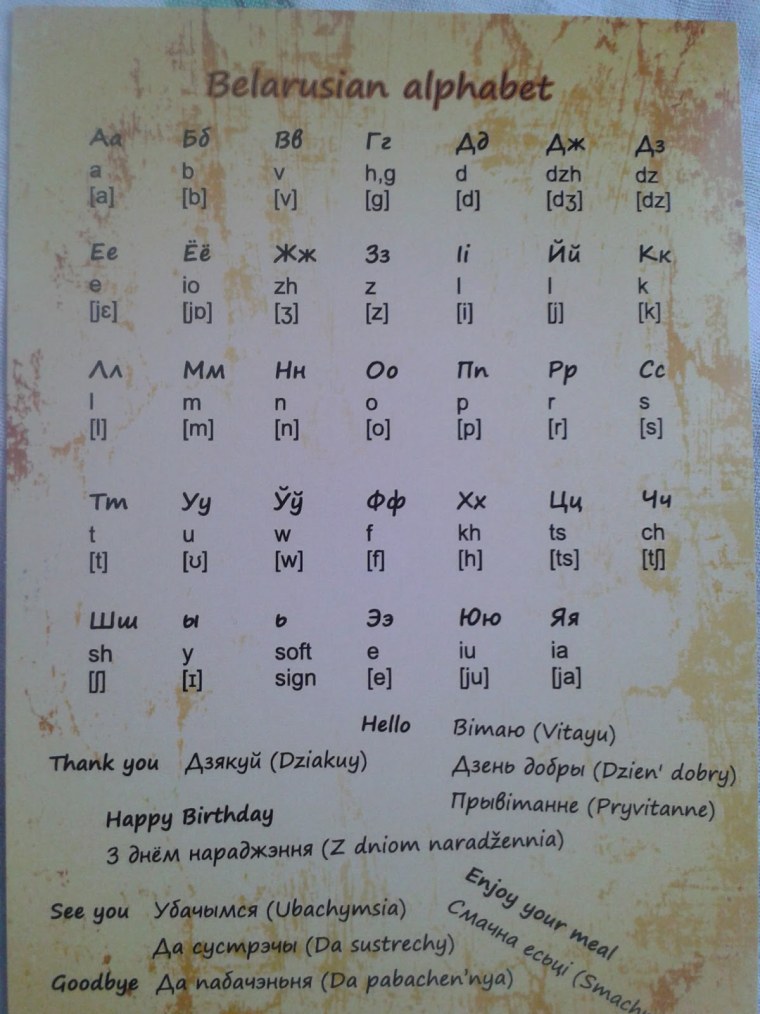 Belarusian alphabet
Аа Бб Вв Гг Дд Дж Дз
a b v h,g d dzh dz
[a] [b] [v] [g] [d] [dʒ] [dz]
Ее Ёё Жж Зз Іі Йй Кк
e io zh z I I k
[jɛ] [jɒ] [ʒ] [z] [i] [j] [k]
Лл Мм Нн Оо Пп Рр Сс
l m n o p r s
[l] [m] [n] [o] [p] [r] [s]
Тт Уу Ўў Фф Хх Цц Чч
t u w f kh ts ch
[t] [ʊ] [w] [f] [h] [ts] [tʃ]
Шш ы ь Ээ Юю Яя
sh y soft e iu ia
[ʃ] [ɪ] sign [e] [ju] [ja]
Hello Вітаю (Vitayu)
Thank you Дзякуй (Dziakuy)
Дзень добры (Dzien' dobry)
Прывітанне (Pryvitanne)
Happy Birthday
З днём нараджэння (Z dniom naradžennia)
Enjoy your meal
Смачна есьці
See you Убачымся (Ubachymsia)
Да сустрэчы (Da sustrechy)
Goodbye Да пабачэньня (Da pabachen'nya)